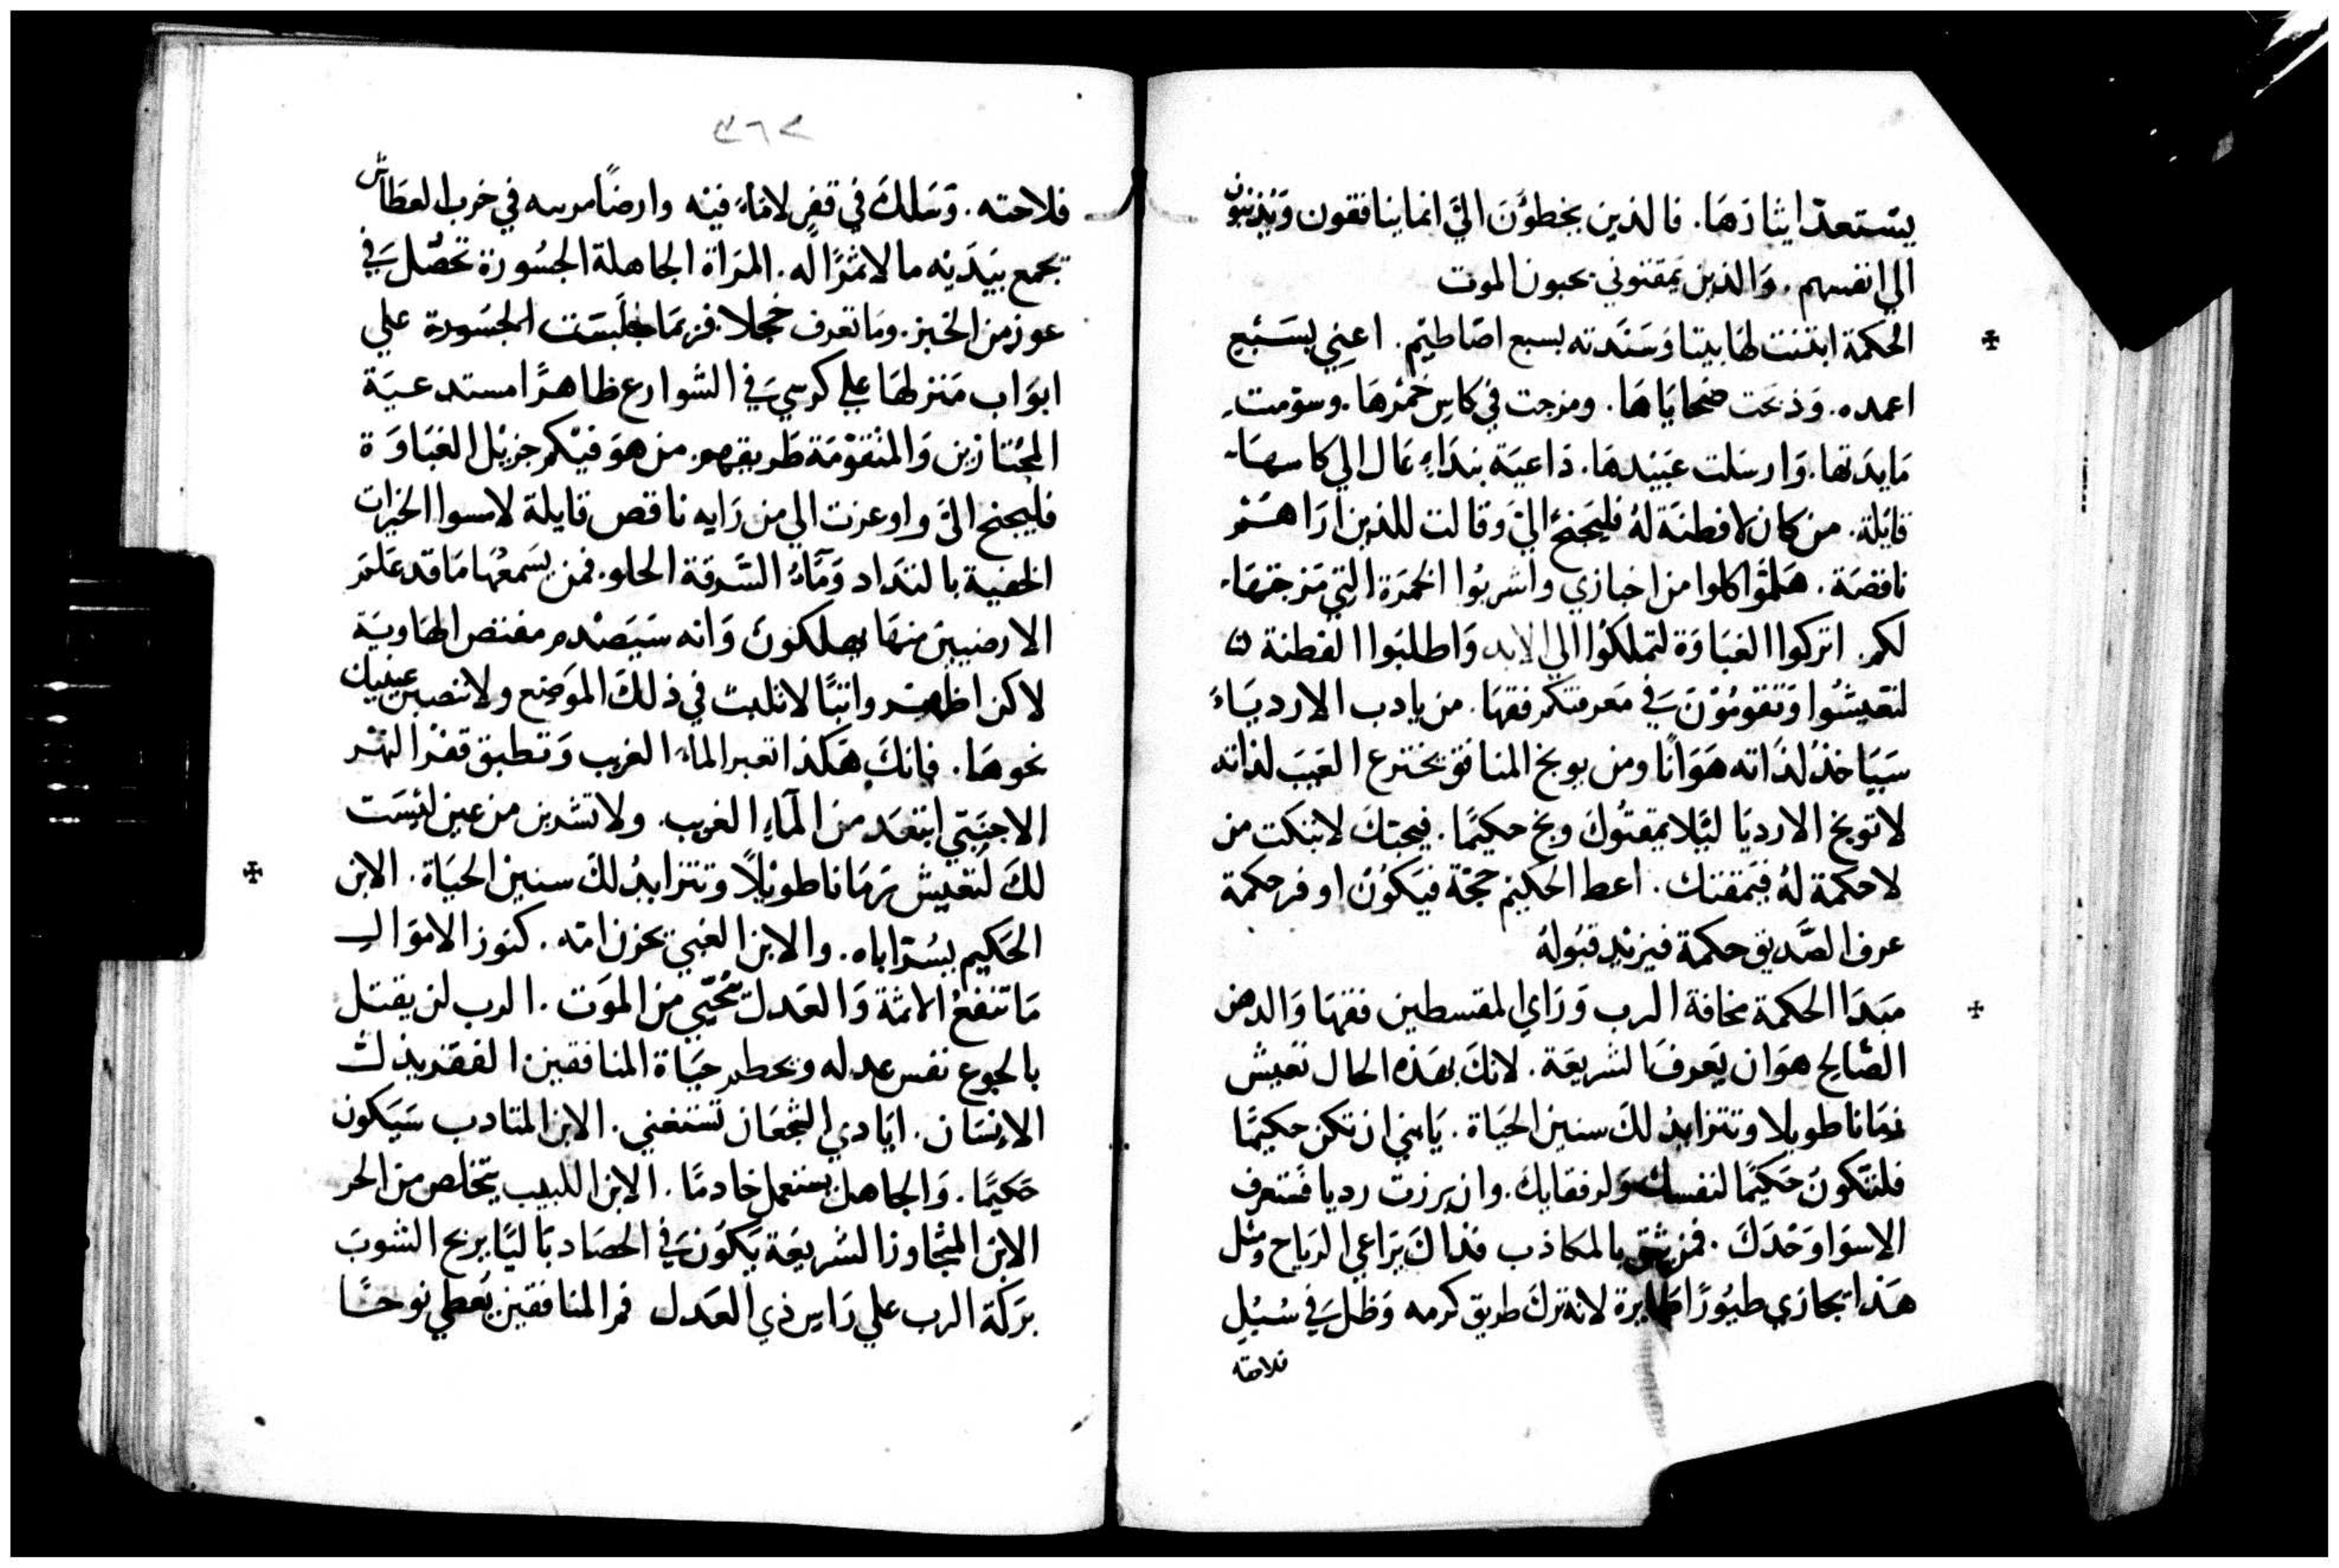 يستعد ايثارَهَا. فالذين يخطوُنَ اليَّ انما ينافقون وَيذنبون
الي انفسهم. وَالذين يمقتوني يحبون الموت
الحكمة ابتنت لهَا بيتا وَسَنَدته بسبع اصَاطيم. اعني بسَبع
اعمده. وَذبحت ضحايَاهَا. ومزجت في كاسٍ خمرهَا. وسوّمت
مَايدَتها. وَارسَلت عَبيدهَا. دَاعيَة بندَاءٍ عَال الي كاسهَا
قايلة. من كان لا فطنَة لهُ فليجنح اليَّ وقالت للذين ارَاهُمْ
ناقصَة. هَلمّوا كلوا من اخبازي واشربُوا الخمرَة التي مَزجتهَا
لكم. اتركوا الغبَاوَة لتملكوُا الي الابد وَاطلبَوا الفطنة
لتعَيشُوا وَتقومُوْنَ في مَعرفتكم فقهَا. من يادب الاردياءَ
سَيَاخذُ لذَاته هَوَانًا ومن يوبخ المنافق يخترع العَيبَ لذاته
لا توبخ الارديَا ليَلا يمقتُوكَ وبخ حكيمًا. فيحبّكَ لا تبكت من
لا حكمة لهُ فيَمقتك. اعط الحكيم حجَة فيَكوُنُ اوفر حكمة
عرف الصَّديق حكمة فيزيْد قبُولهُ
مَبدَا الحكمة مخافة الرب وَرَاي المقسطين فقهَا وَالدهن
الصَّالح هوَ ان يَعرفَ الشريعَة. لانكَ بهَذه الحال تعَيش
زمَانا طويلا وتتزايدُ لكَ سنين الحيَاة. يَابني ان تكن حكيمًا
فلتَكونُ حَكيمًا لنفسك وَلرفقايكَ. وان برزت رديا فستعرف
الاسوَا وَحْدَكَ. فمن يثق بالمكاذب فذاكَ يرَاعي الريَاح ومثل
هَذا يجازي طيُورًا طايرة لانه تركَ طريق كرمه وَظلَ في سُبُل
فلاحته
٣٦٢
فلاحته. وَسَلكَ في قفرٍ لا مَاءً فيْه وارضًا مرسه في خرب العطَاش
تجمع بيَدَيْه مالا ثمرًا له. المرَاة الجاهلة الجسُورة تحصّل في
عوز من الخبز. ومَا تعرف خجلا. فربمَا جلَبسَت الجسُورة علي
ابوَاب مَنزلهَا علي كرسي في الشوارع ظاهرًا مستدعيَة
المجُتازين وَالمتقوْمَة طَريقهم. من هوَ فيْكم جزيْل الغبَاوَة
فليجنح اليَّ واوعزت الي من رَايه ناقص قايلة لامسوا الخبزات
الخفية بالتدَاد وَمَآءُ السَّرقة الحلو. فمن يَسَمعهُا مَا قد عَلمَ
الارضيينَ منهَا يهلكونَ وَانه سَيَصْدم مفتص الهَاويَة
لاكن اظفِرْ واتبًا لا تلبث في ذلكَ الموَضع ولا تنصبن عينيك
نحوهَا. فانكَ هَكذا تعبر الماءَ الغريب وَتطبق قفزا النهر
الاجنبَي ابتعَد من المآءِ الغريب. ولا تشربن من عين ليسَت
لكَ لتَعْيش زمَانا طويْلاً وتتزايدُ لكَ سنين الحيَاة. الابن
الحَكيم يسُرّ اباه. والابن الغبي يحزن امّه. كنوز الامَوال
مَا تنفعُ الاثمة وَالعَدل ينُجّي من الموَت. الرب لن يقتل
بالجوع نفس عدله ويحطم حيَاة المنافقين الفقر يذل
الانسَان. ايَادي الشجعَان تستغني. الابن المتادب سَيَكون
حَكيمًا. وَالجاهل يستعمل خادمًا. الابن اللبيب يتخلص من الحر
الابن المتجَاوز الشريعَة يَكوُن في الحصَاد بَاليًا بريح الشوبَ
برَكة الرب علي رَاس ذي العَدل فم المنافقين يُغطي نوحًا